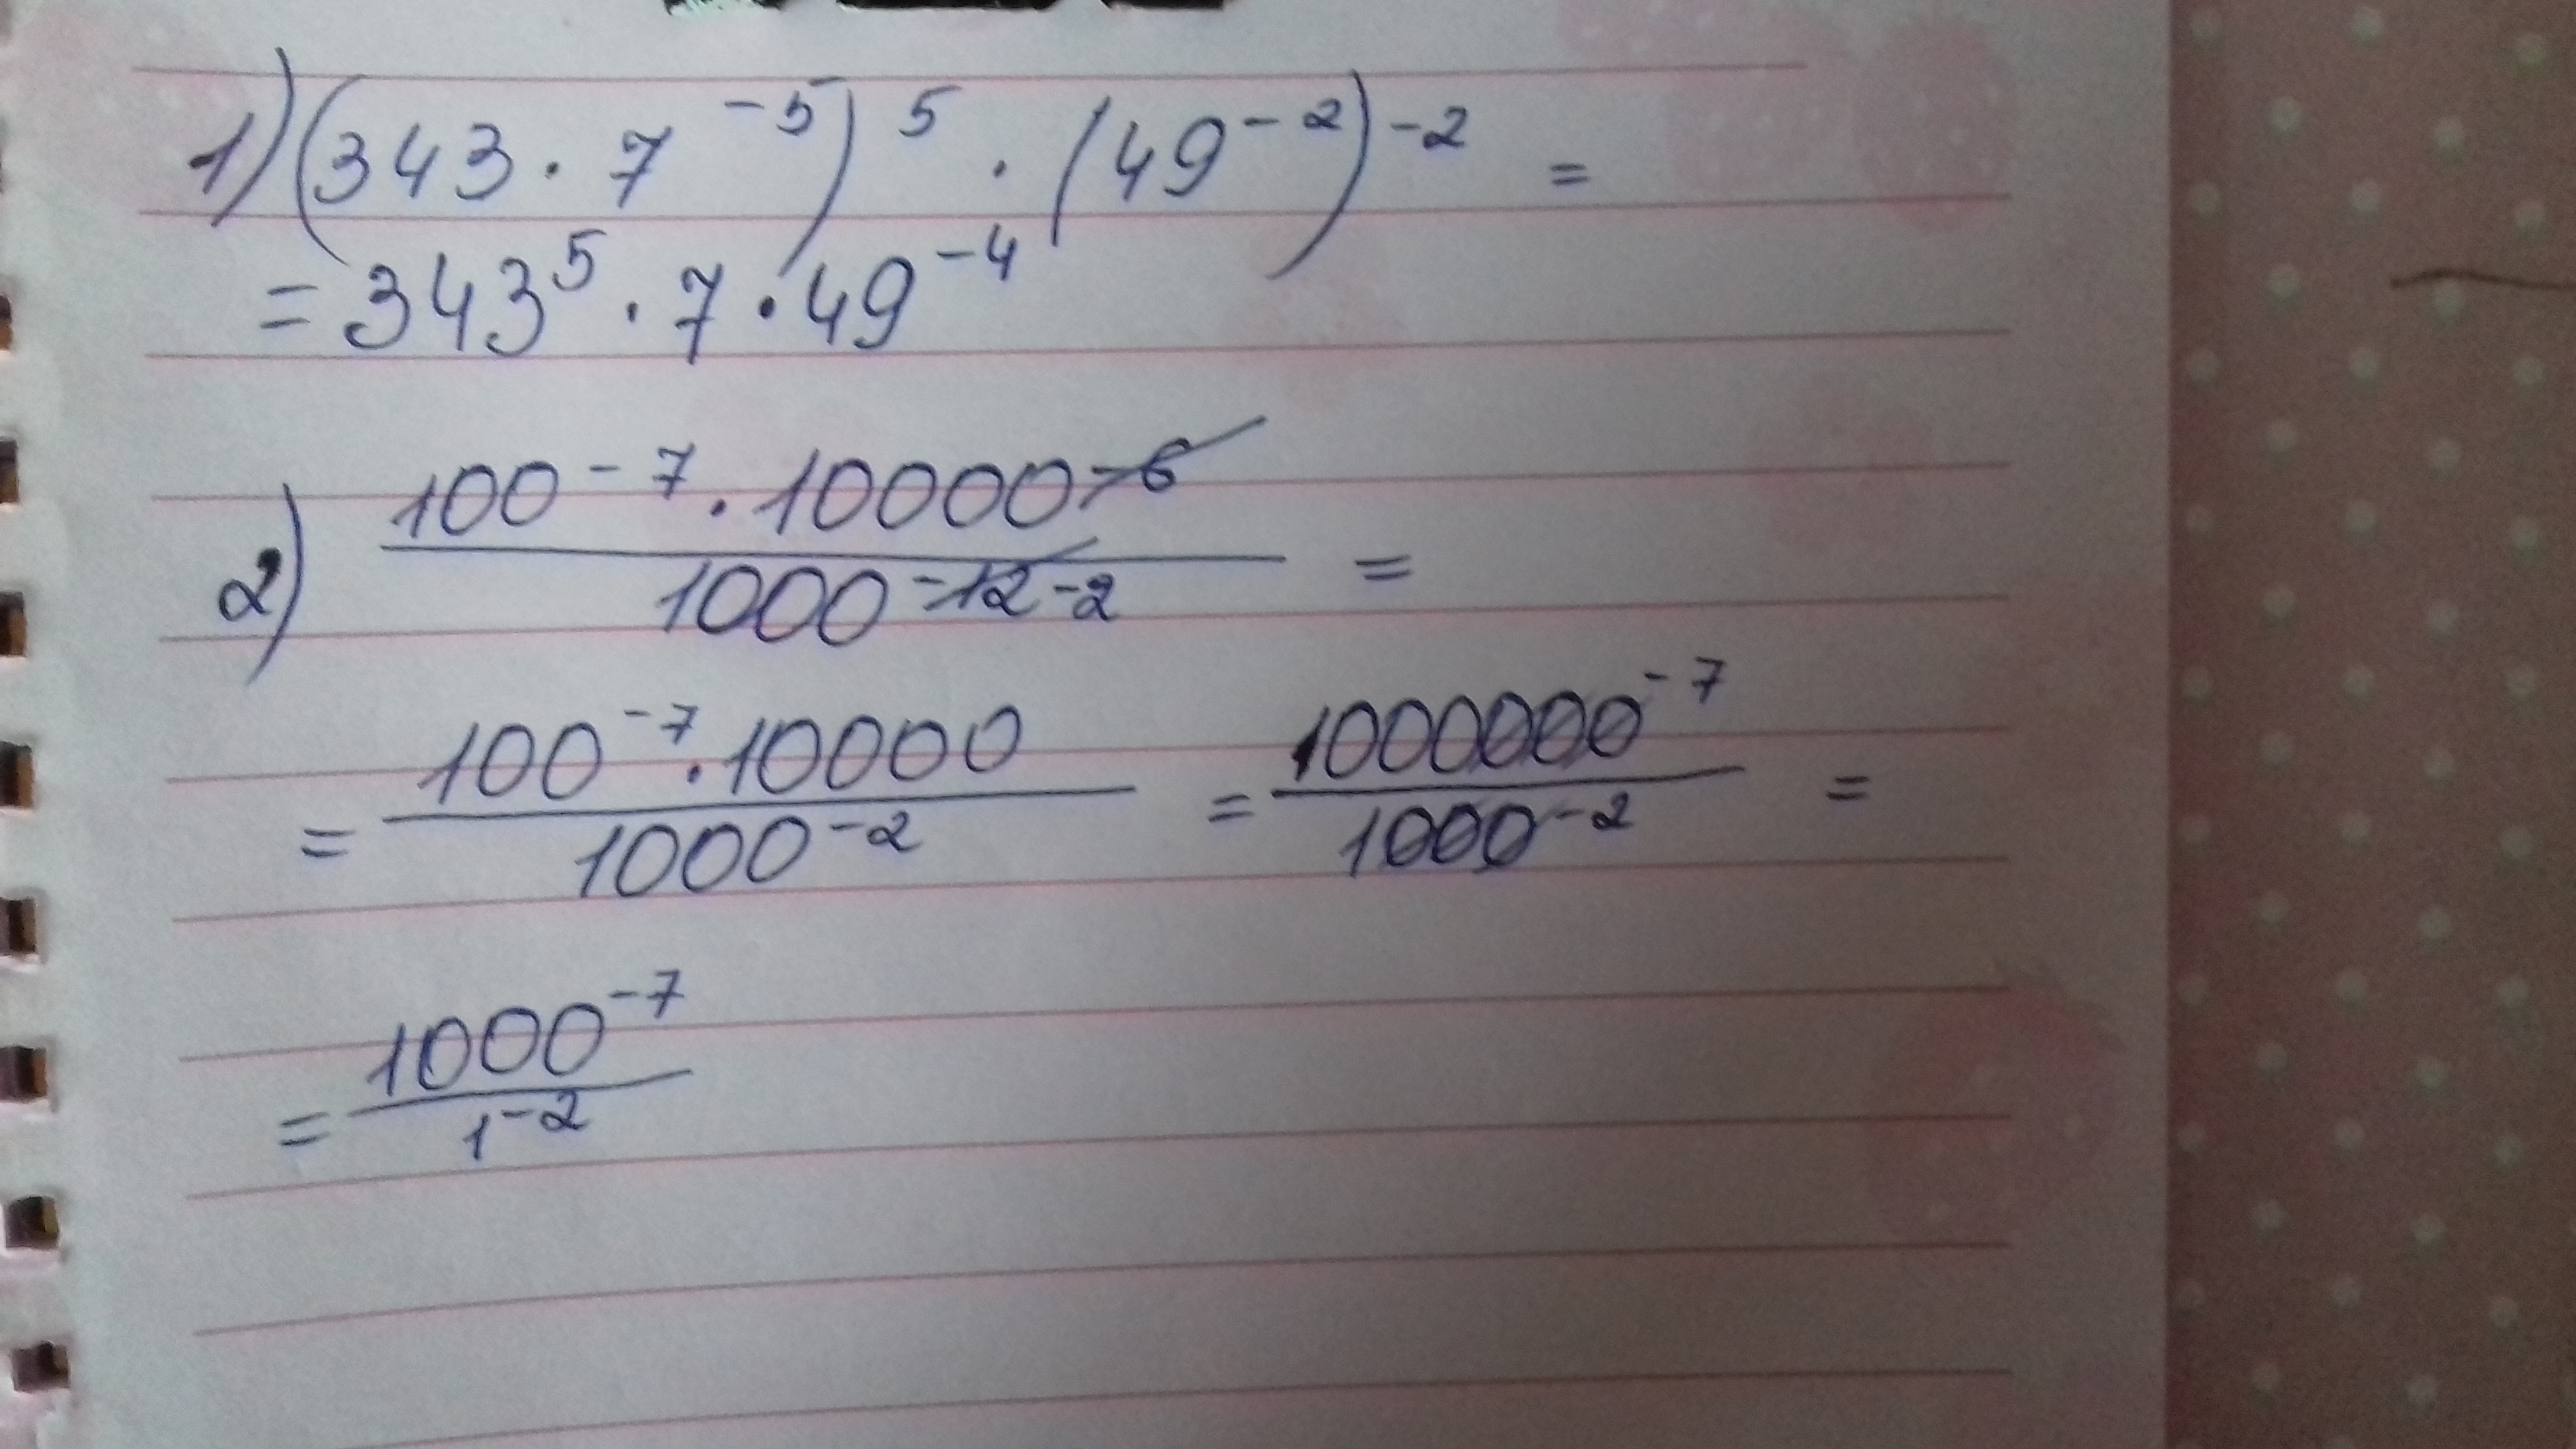 1) (343 · 7⁻⁵)⁵ · (49⁻²)⁻² =
= 343⁵ · 7 · 49⁻⁴
2) 100⁻⁷ · 10000⁻⁶ / 1000⁻¹² ⁻² =
= 100⁻⁷ · 10000 / 1000⁻² = 1000000⁻⁷ / 1000⁻² =
= 1000⁻⁷ / 1⁻²